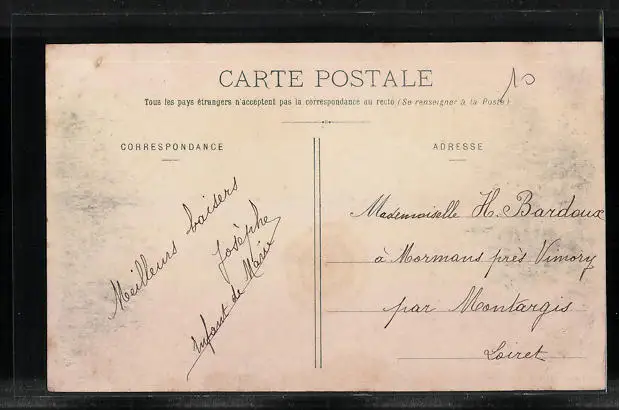 CARTE POSTALE
10
Tous les pays étrangers n'acceptent pas la correspondance au recto (Se renseigner à la Poste)
CORRESPONDANCE
Meilleurs baisers
Josèphe
Enfant de Marie
ADRESSE
Mademoiselle H. Bardoux
à Mormans près Vimory
par Montargis
Loiret